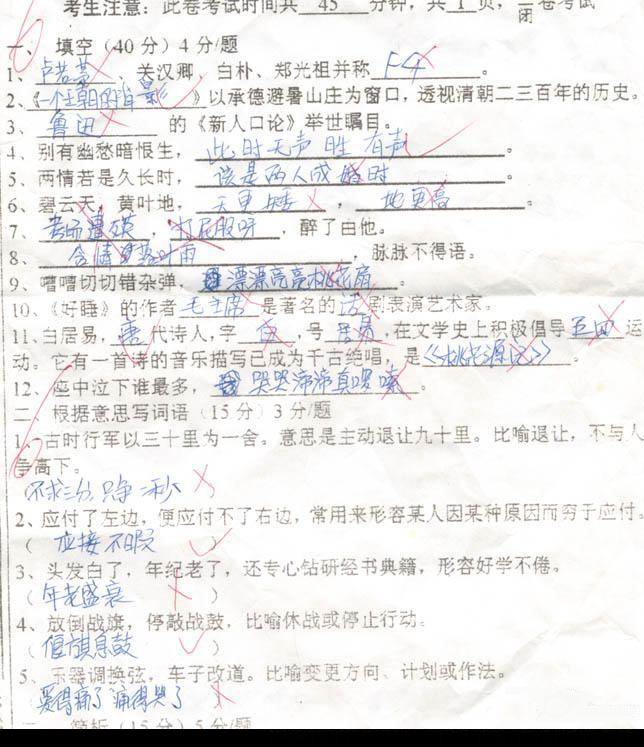 考生注意：此卷考试时间共 45 分钟，共 1 页，闭卷考试
一、填空（40分）4分/题
1、卢若亭、关汉卿、白朴、郑光祖并称 F4 。
2、《一个王朝的背影》以承德避暑山庄为窗口，透视清朝二三百年的历史。
3、鲁迅 的《新人口论》举世瞩目。
4、别有幽愁暗恨生，此时无声胜有声。
5、两情若是久长时，该是两人成婚时。
6、碧云天，黄叶地，天更矮，地更高。
7、考场遭殃，打屁股呀，醉了由他。
8、含情梦落叶雨，脉脉不得语。
9、嘈嘈切切错杂弹，漂漂亮亮桃花扇。
10、《好睡》的作者毛主席是著名的话剧表演艺术家。
11、白居易，唐代诗人，字白，号居易，在文学史上积极倡导五四运
动。它有一首诗的音乐描写已成为千古绝唱，是《桃花源记》。
12、座中泣下谁最多，哭哭啼啼真啰嗦。
二 根据意思写词语（15分）3分/题
1、古时行军以三十里为一舍。意思是主动退让九十里。比喻退让，不与人
争高下。
不求三分，只争一秒
2、应付了左边，便应付不了右边，常用来形容某人因某种原因而穷于应付。
（应接不暇）
3、头发白了，年纪老了，还专心钻研经书典籍，形容好学不倦。
（年老盛衰）
4、放倒战旗，停敲战鼓，比喻休战或停止行动。
（偃旗息鼓）
5、乐器调换弦，车子改道。比喻变更方向、计划或作法。
爱得痛了 痛得哭了
简析（15分）5分/题